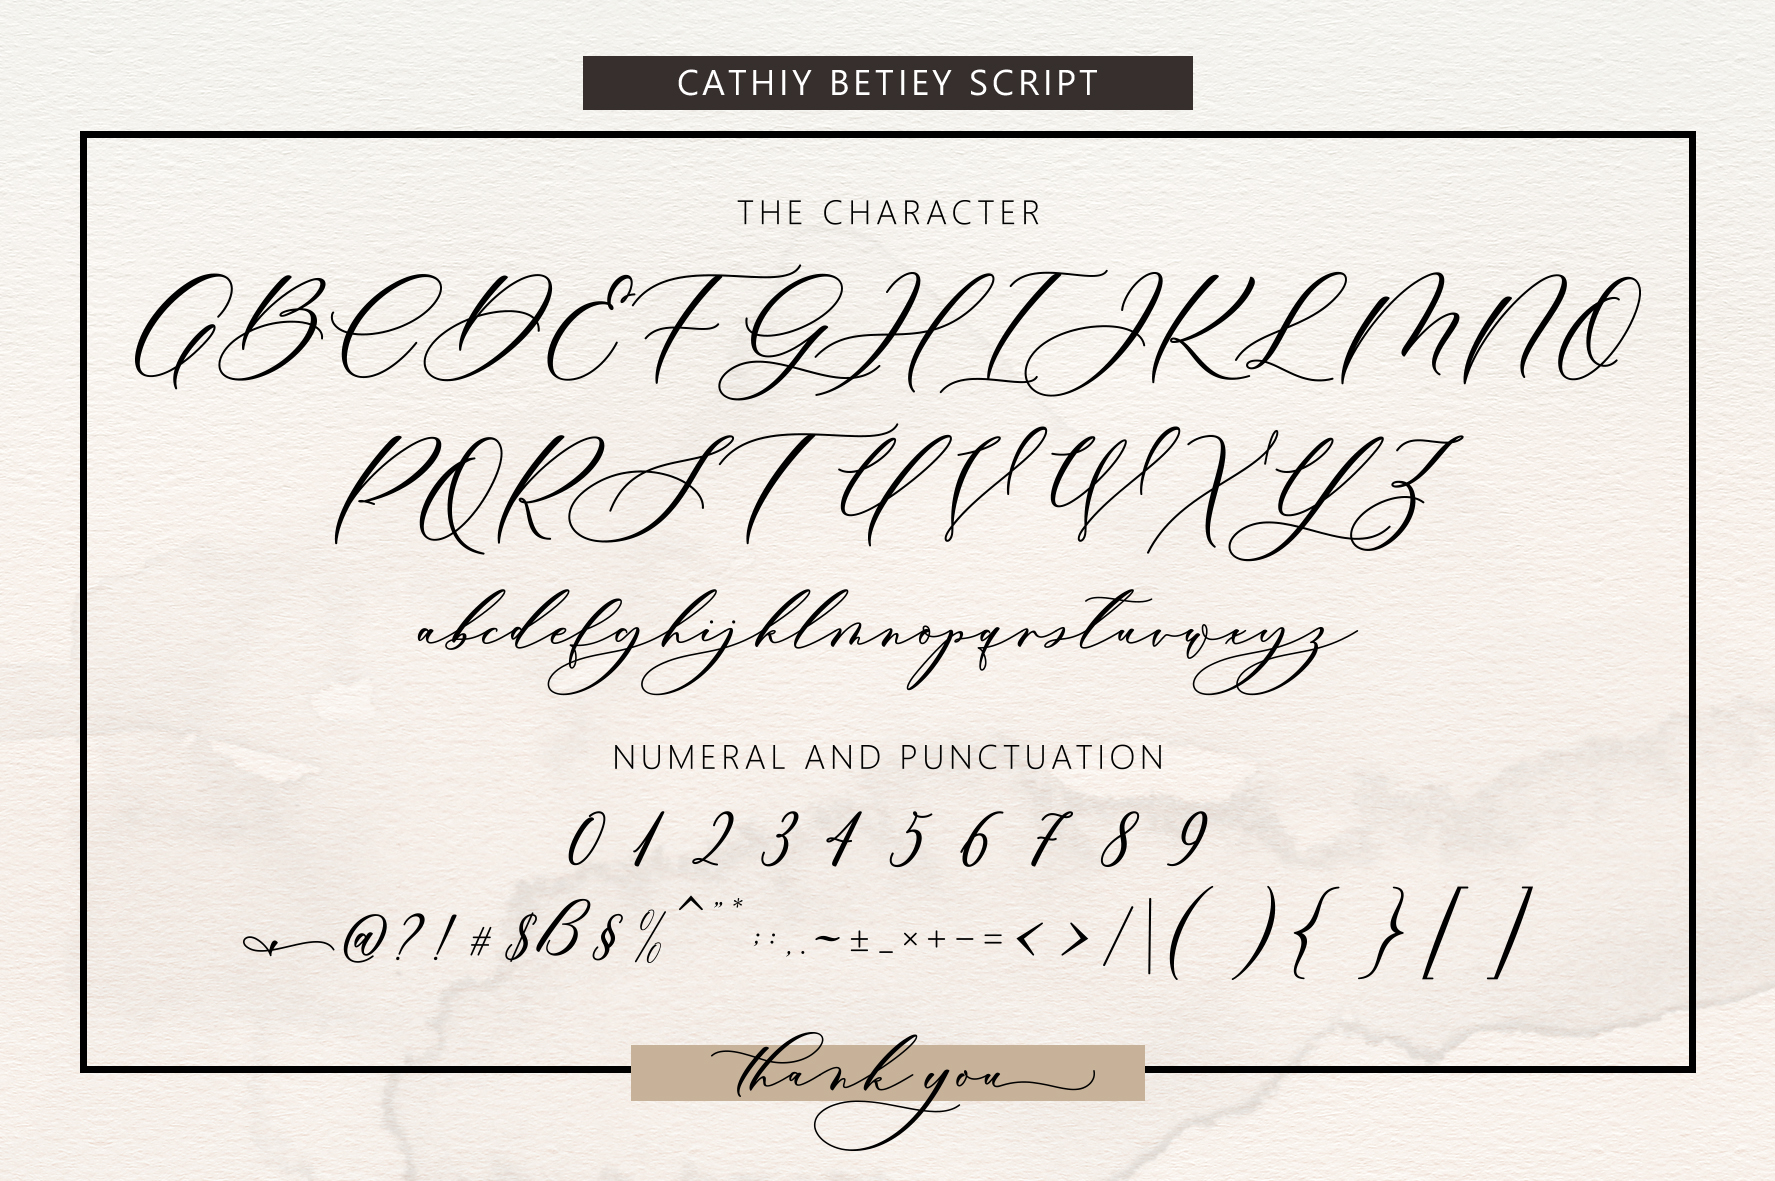 CATHIY BETIEY SCRIPT
THE CHARACTER
ABCDEFGHIJKLMNO
PQRSTUVWXYZ
abcdefghijklmnopqrstuvwxyz
NUMERAL AND PUNCTUATION
0 1 2 3 4 5 6 7 8 9
@ ? ! # $ ß § % ^ " * ; : , . ~ ± _ × + − = < > / | ( ) { } [ ]
thank you